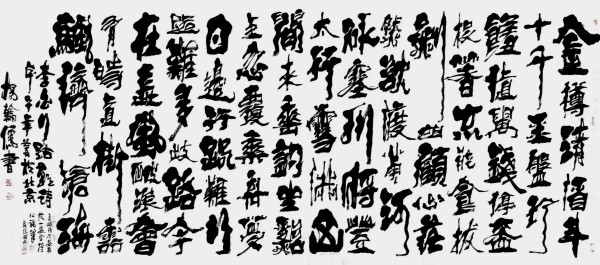 金樽清酒斗
十千玉盤珍
羞直萬錢停杯
投箸不能食拔
劍四顧心茫
然欲渡黃河
冰塞川將登
太行雪滿山
閒來垂釣坐
上忽復乘舟夢
日邊行路難行
路難多歧路今
在長風破浪會
有時直掛雲
帆濟滄海
李白行路難詩
於北京
書